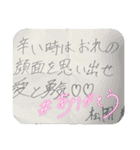 辛い時はおれの
顔面を思い出せ
愛と勇気♡♡
#ありがとう
松岡